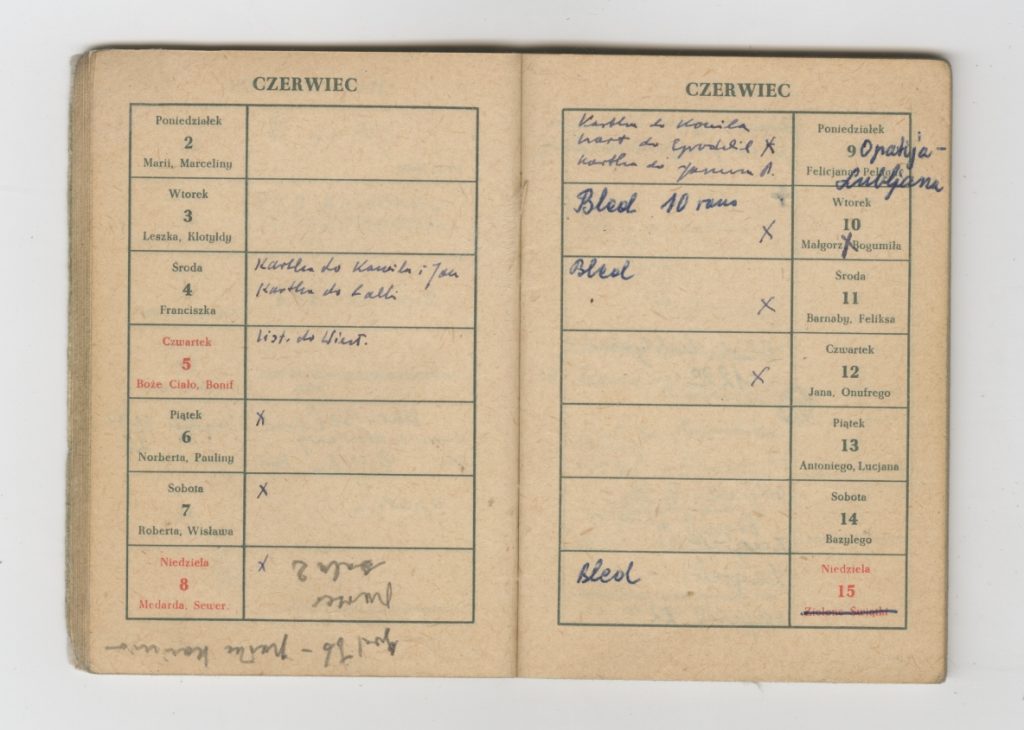 CZERWIEC
Poniedziałek
2
Marii, Marceliny
Wtorek
3
Leszka, Klotyldy
Środa
4
Franciszka
Kartka do Kamila i Jan
Kartka do Lalli
Czwartek
5
Boże Ciało, Bonif
List. do Wiesł.
Piątek
6
Norberta, Pauliny
X
Sobota
7
Roberta, Wisława
X
Niedziela
8
Medarda, Sewer.
X
sala 2
parter
CZERWIEC
Kartka do Kamila
do X
Kartka do R.
Poniedziałek
9
Felicjana
Opatija-
Lubljana
Bled 10 rano
X
Wtorek
10
Małgorz, X Bogumiła
Bled
X
Środa
11
Barnaby, Feliksa
X
Czwartek
12
Jana, Onufrego
Piątek
13
Antoniego, Lucjana
Sobota
14
Bazylego
Bled
Niedziela
15
Zielone Świątki